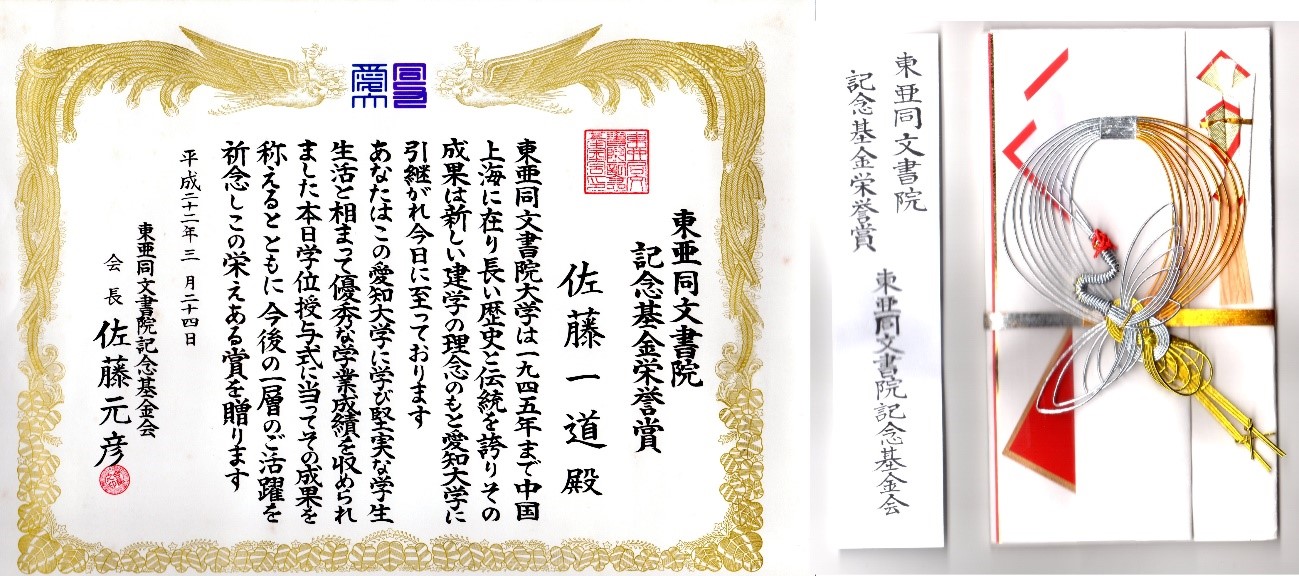 愛大 同文
東亜同文書院
記念基金栄誉賞
佐藤一道殿
東亜同文書院大学は一九四五年まで中国
上海に在り長い歴史と伝統を誇りその
成果は新しい建学の理念のもと愛知大学に
引継がれ今日に至っております
あなたはこの愛知大学に学び堅実な学生
生活と相まって優秀な学業成績を収められ
ました本日学位授与式に当ってその成果を
称えるとともに今後の一層のご活躍を
祈念しこの栄えある賞を贈ります
平成二十二年三月二十四日
東亜同文書院記念基金会
会長 佐藤元彦
東亜同文書院
記念基金栄誉賞
東亜同文書院記念基金会